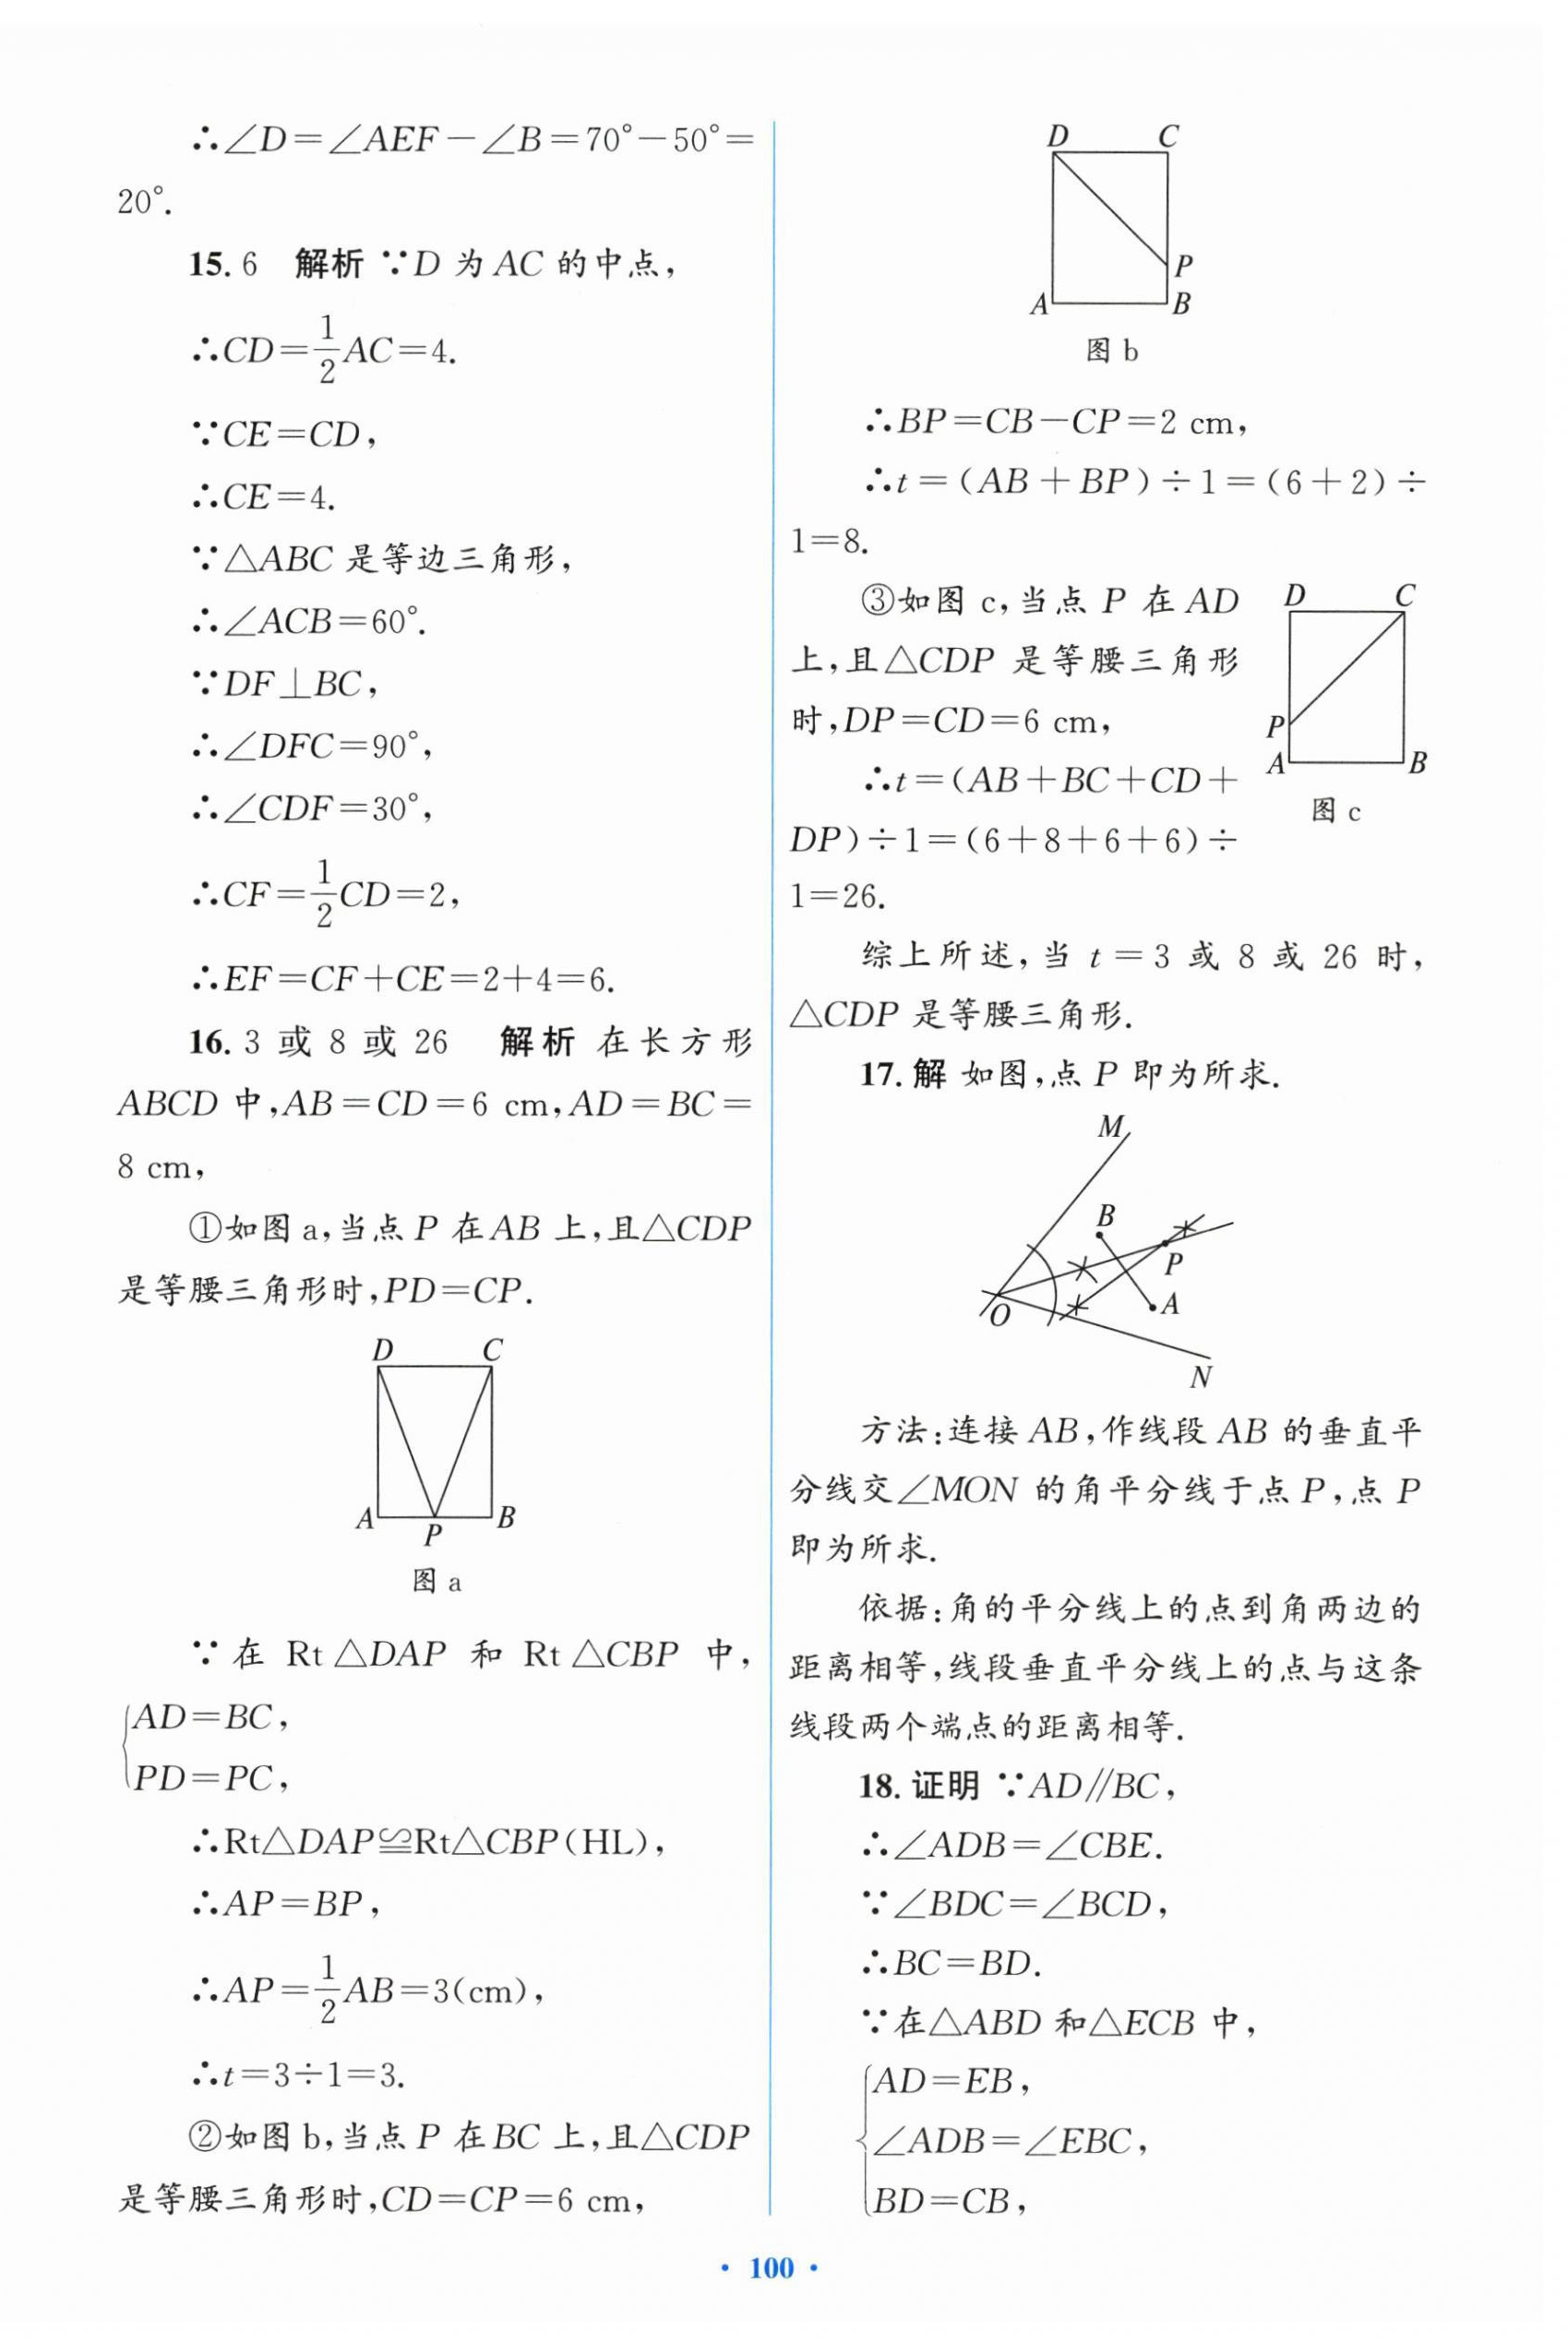 ∴∠D=∠AEF-∠B=70°-50°=
20°.
15. 6 解析 ∵D 为 AC 的中点，
∴CD=\frac{1}{2}AC=4.
∵CE=CD，
∴CE=4.
∵△ABC 是等边三角形，
∴∠ACB=60°.
∵DF⊥BC，
∴∠DFC=90°，
∴∠CDF=30°，
∴CF=\frac{1}{2}CD=2，
∴EF=CF+CE=2+4=6.
16. 3 或 8 或 26 解析 在长方形
ABCD 中，AB=CD=6 cm，AD=BC=
8 cm，
①如图 a，当点 P 在 AB 上，且△CDP
是等腰三角形时，PD=CP.
D C
A P B
图 a
∵在 Rt△DAP 和 Rt△CBP 中，
{AD=BC，
PD=PC，
∴Rt△DAP≌Rt△CBP(HL)，
∴AP=BP，
∴AP=\frac{1}{2}AB=3(cm)，
∴t=3÷1=3.
②如图 b，当点 P 在 BC 上，且△CDP
是等腰三角形时，CD=CP=6 cm，
D C
P
A B
图 b
∴BP=CB-CP=2 cm，
∴t=(AB+BP)÷1=(6+2)÷
1=8.
③如图 c，当点 P 在 AD
上，且△CDP 是等腰三角形
时，DP=CD=6 cm，
∴t=(AB+BC+CD+
DP)÷1=(6+8+6+6)÷
1=26.
D C
P
A B
图 c
综上所述，当 t=3 或 8 或 26 时，
△CDP 是等腰三角形.
17. 解 如图，点 P 即为所求.
M
B
P
O A
N
方法：连接 AB，作线段 AB 的垂直平
分线交∠MON 的角平分线于点 P，点 P
即为所求.
依据：角的平分线上的点到角两边的
距离相等，线段垂直平分线上的点与这条
线段两个端点的距离相等.
18. 证明 ∵AD∥BC，
∴∠ADB=∠CBE.
∵∠BDC=∠BCD，
∴BC=BD.
∵在△ABD 和△ECB 中，
{AD=EB，
∠ADB=∠EBC，
BD=CB，
· 100 ·